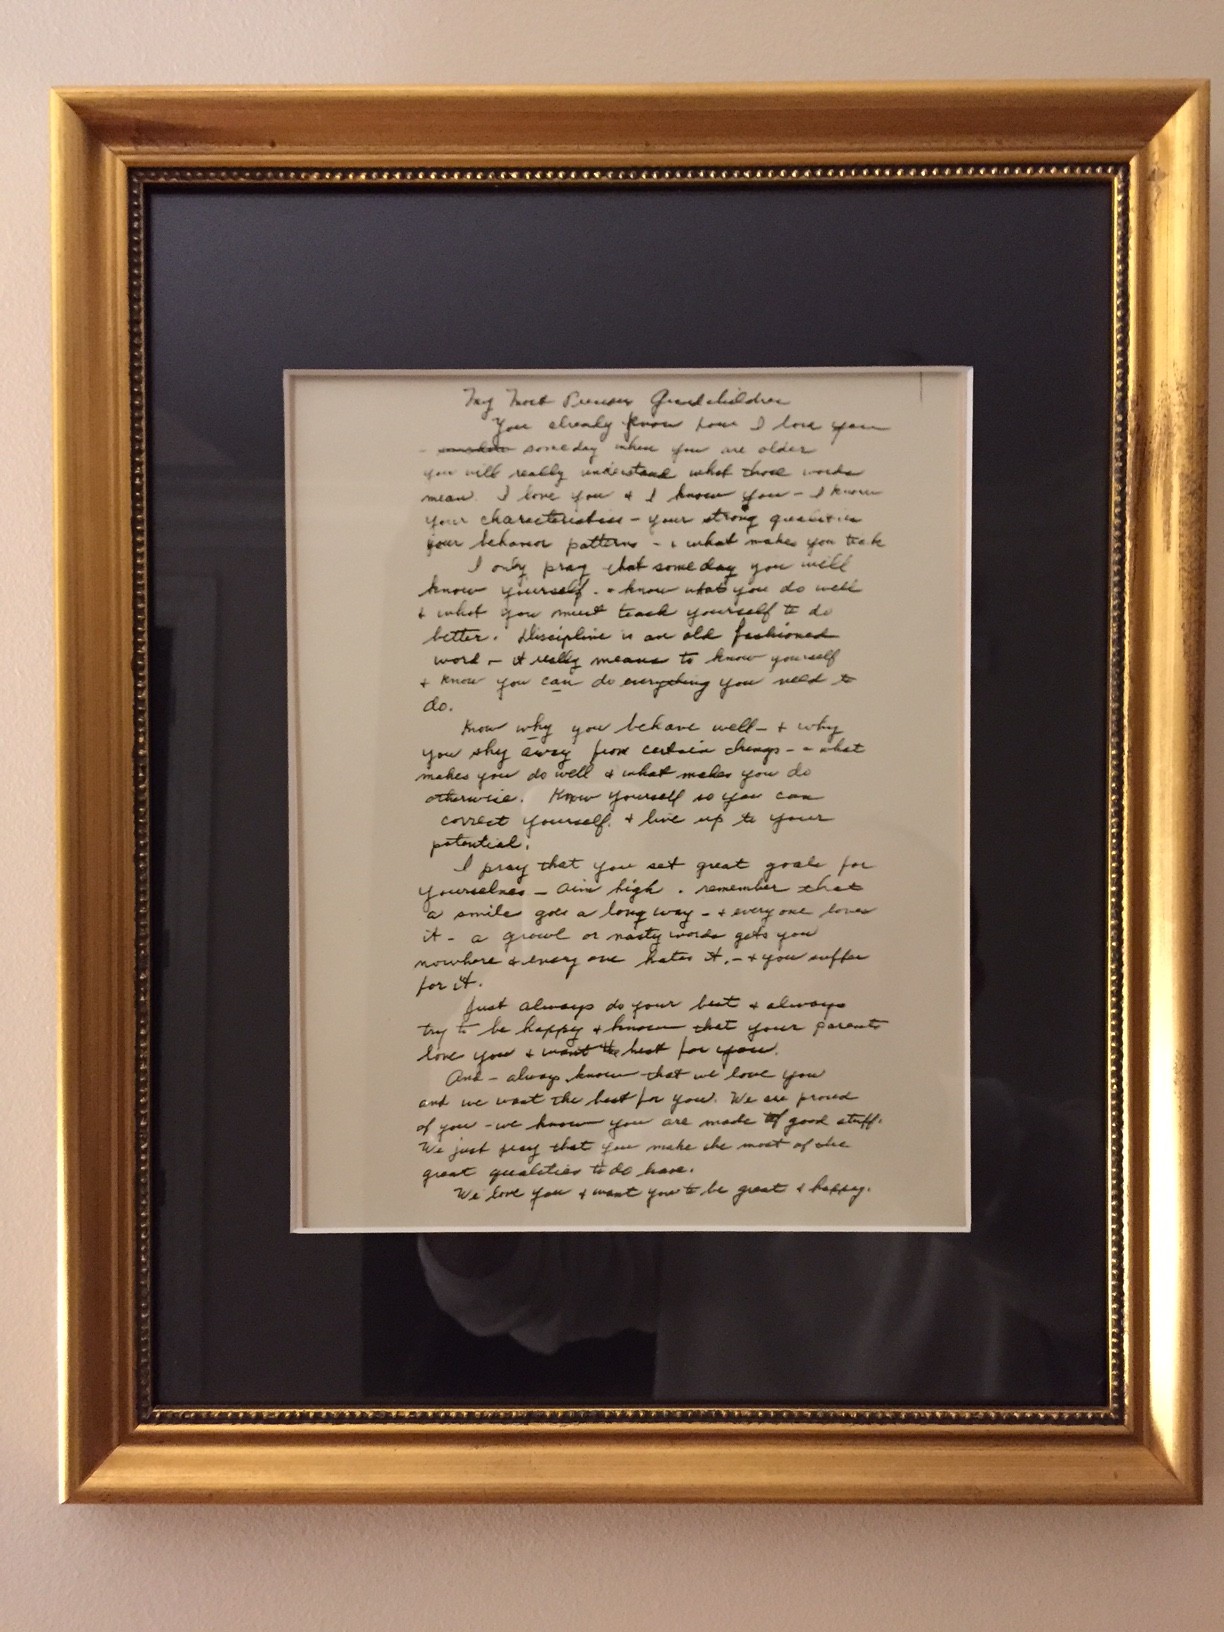 My Most Precious Grandchildren
You already know how I love you
- someday when you are older
you will really understand what those words
mean. I love you & I know you - I know
your characteristics - your strong qualities
your behavior patterns - & what makes you tick
I only pray that someday you will
know yourself - & know what you do well
& what you must teach yourself to do
better. Discipline is an old fashioned
word - it really means to know yourself
& know you can do everything you need to
do.
Know why you behave well - & why
you shy away from certain things - & what
makes you do well & what makes you do
otherwise. Know yourself so you can
correct yourself & live up to your
potential.
I pray that you set great goals for
yourselves - aim high. remember that
a smile goes a long way - & everyone loves
it - a growl or nasty words gets you
nowhere & every one hates it. - & you suffer
for it.
Just always do your best & always
try to be happy & know that your parents
love you & want the best for you.
And - always know that we love you
and we want the best for you. We are proud
of you - we know you are made of good stuff.
We just pray that you make the most of the
great qualities to do have.
We love you & want you to be great & happy.